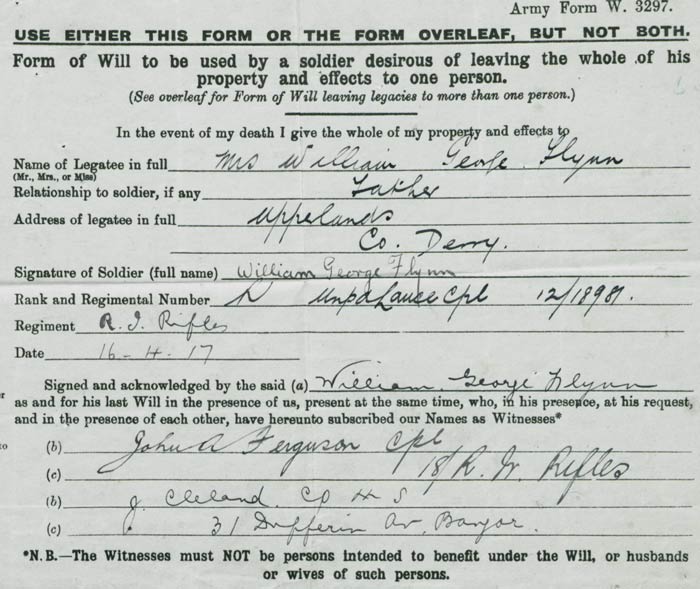 Army Form W. 3297.
USE EITHER THIS FORM OR THE FORM OVERLEAF, BUT NOT BOTH.
Form of Will to be used by a soldier desirous of leaving the whole of his
property and effects to one person.
(See overleaf for Form of Will leaving legacies to more than one person.)
In the event of my death I give the whole of my property and effects to
Name of Legatee in full Mrs William George Flynn
(Mr., Mrs., or Miss)
Relationship to soldier, if any Father
Address of legatee in full Upperlands
Co. Derry.
Signature of Soldier (full name) William George Flynn
Rank and Regimental Number Unpd Lance Cpl 12/18981.
Regiment R. I. Rifles
Date 16-4-17
Signed and acknowledged by the said (a) William George Flynn
as and for his last Will in the presence of us, present at the same time, who, in his presence, at his request,
and in the presence of each other, have hereunto subscribed our Names as Witnesses*
(b) John A Ferguson Cpl
(c) 18/ R. Ir Rifles
(b) J. Cleland.
(c) 31 Dufferin Av. Bangor.
*N.B.—The Witnesses must NOT be persons intended to benefit under the Will, or husbands
or wives of such persons.